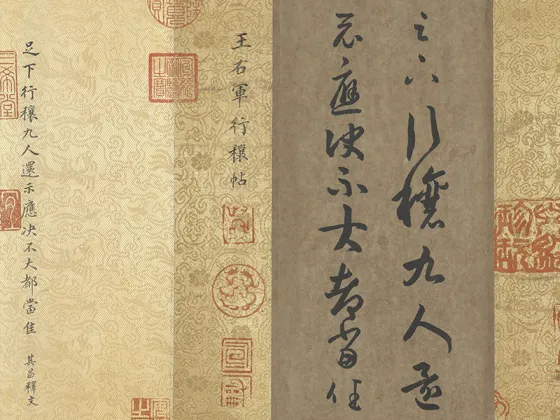 足下行穰九人還
示應決不大都當佳
王右軍行穰帖
足下行穰九人還示應決不大都當佳 其昌釋文